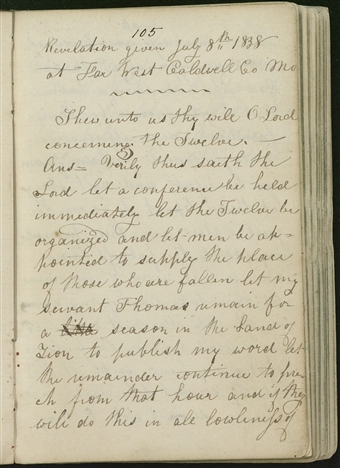 105
Revelation given July 8th 1838
at Far West Caldwell Co Mo
Shew unto us thy will O Lord
concerning the Twelve. —
Ans= Verily thus saith the
Lord let a conference be held
immediately let the Twelve be
organized and let men be ap=
pointed to supply the place
of those who are fallen let my
servant Thomas remain for
a season in the land of
Zion to publish my word let
the remainder continue to prea
ch from that hour and if they
will do this in all lowliness of